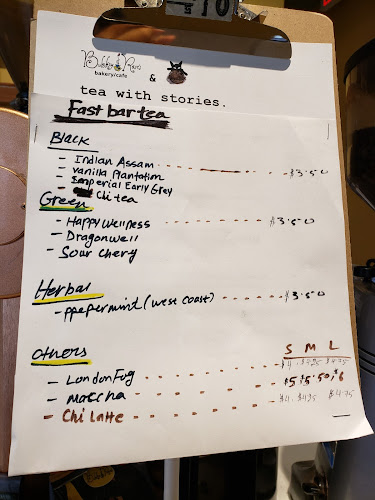 bakery/cafe
&
tea with stories.
Fast bar tea
Black
- Indian Assam - - - - - - - - - $3.50
- Vanilla Plantation
- Imperial Early Grey
- Chi tea
Green
- Happy Wellness - - - - - - - - - $3.50
- Dragonwell
- Sour Chery
Herbal
- ppepermint (west coast) - - - - - - $3.50
Others S M L
- London Fog - - - - - - - $5 $5.50 $6
- Matcha - - - - - - - $4 $4.75
- Chi Latte